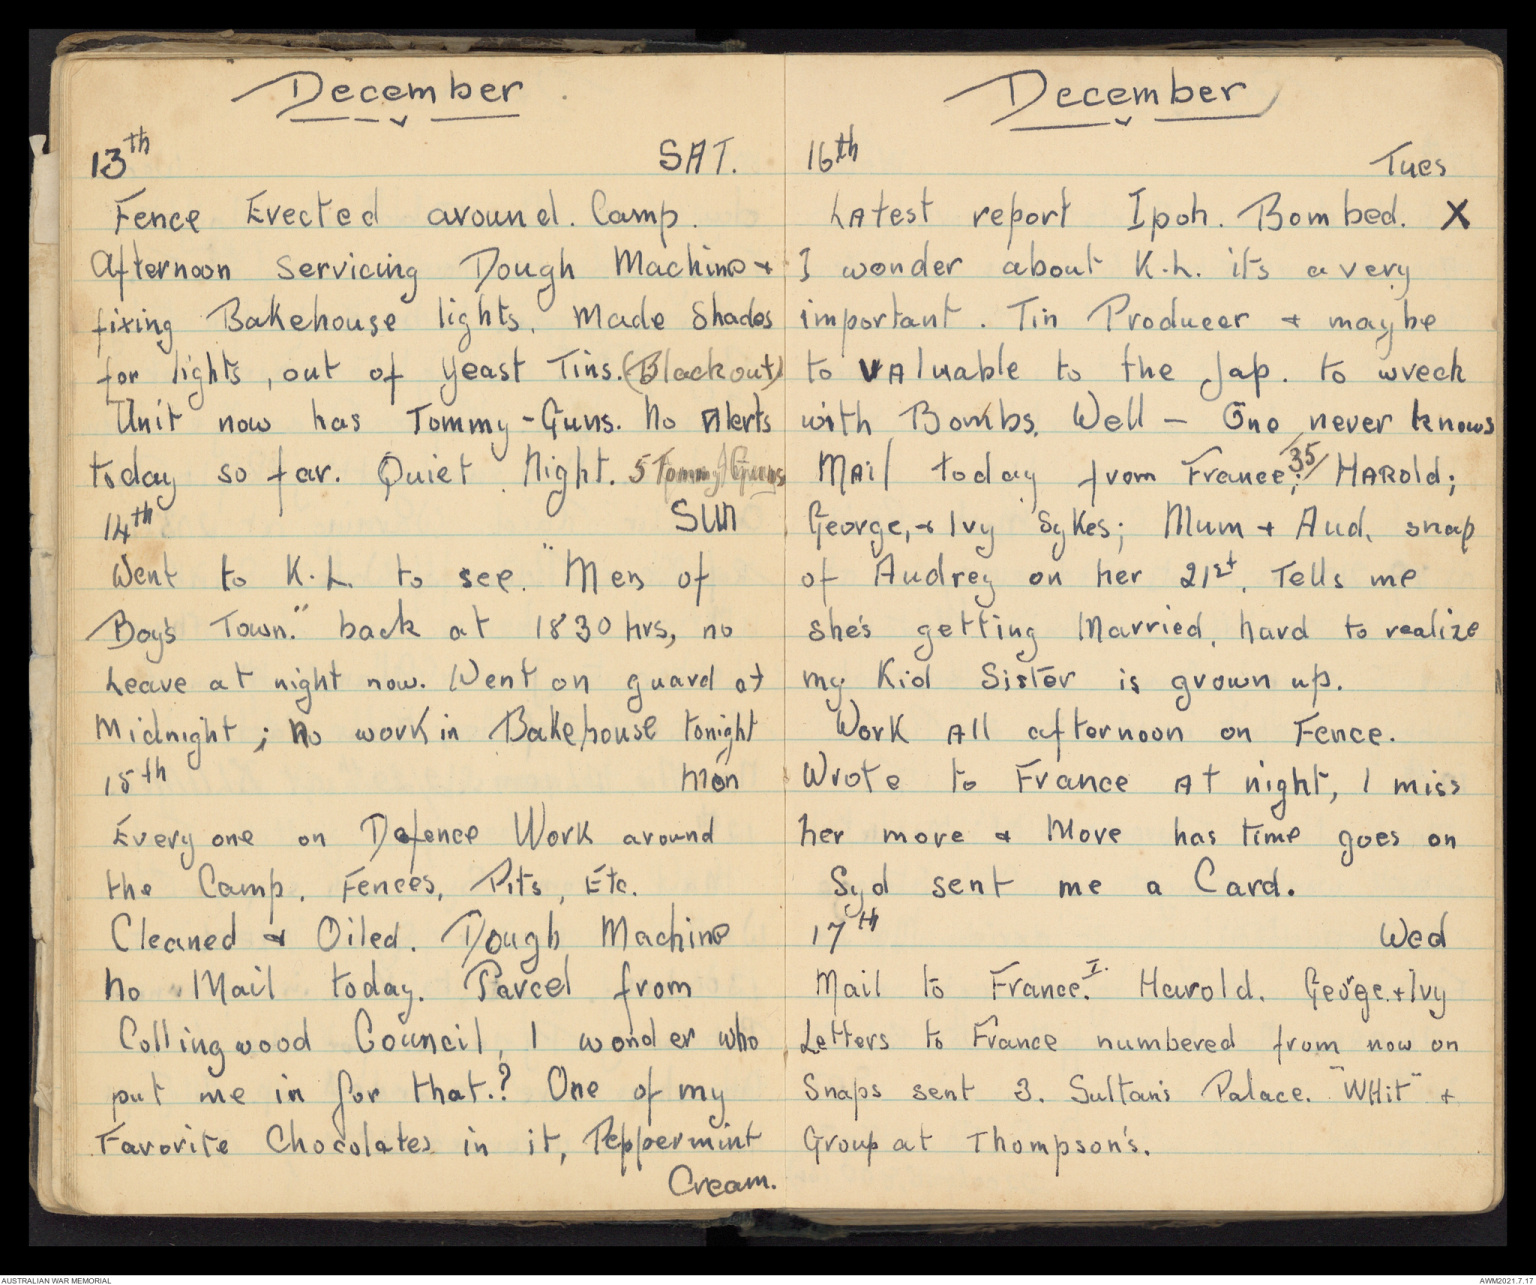 December
13th SAT.
Fence Erected around. Camp.
Afternoon servicing Dough Machine +
fixing Bakehouse lights. Made Shades
for lights, out of Yeast Tins. (Blackout)
Unit now has Tommy-Guns. No Alerts
today so far. Quiet Night. 5 Tommy Guns
14th SUN
Went to K.L. to see. "Men of
Boy's Town." back at 1830 hrs, no
Leave at night now. Went on guard at
Midnight; No work in Bakehouse tonight
15th Mon
Every one on Defence Work around
the Camp. Fences, Pits, Etc.
Cleaned & Oiled. Dough Machine
No Mail today. Parcel from
Collingwood Council, I wonder who
put me in for that.? One of my
Favorite Chocolates in it, Peppermint
Cream.
December
16th Tues
LAtest report Ipoh. Bombed. X
I wonder about K.L. it's a very
important. Tin Producer + maybe
to VAluable to the Jap. to wreck
with Bombs. Well — One never knows
MAil today from France; 35/ HARold;
George, + Ivy Sykes; Mum + Aud. snap
of Audrey on her 21st. Tells me
she's getting Married. hard to realize
my Kid Sister is grown up.
Work All afternoon on Fence.
Wrote to France At night, I miss
her more & More has time goes on
Syd sent me a Card.
17th Wed
Mail to France. I. Harold. George. + Ivy
Letters to France numbered from now on
Snaps sent 3. Sultan's Palace. "WHit" +
Group at Thompson's.
AUSTRALIAN WAR MEMORIAL AWM2021.7.17